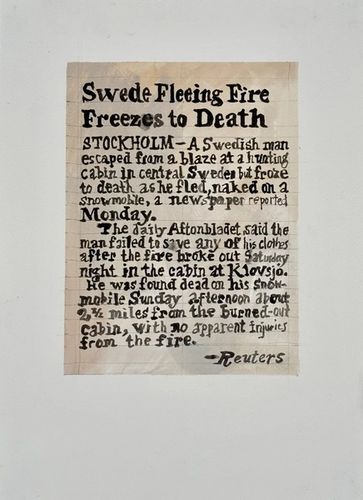 Swede Fleeing Fire
Freezes to Death
STOCKHOLM – A Swedish man
escaped from a blaze at a hunting
cabin in central Swedes but froze
to death as he fled, naked on a
snowmobile, a newspaper reported
Monday.
The daily Aftonbladet said the
man failed to save any of his clothes
after the fire broke out Saturday
night in the cabin at Klovsjo.
He was found dead on his snow-
mobile Sunday afternoon about
2,½ miles from the burned-out
cabin, with no apparent injuries
from the fire.
–Reuters